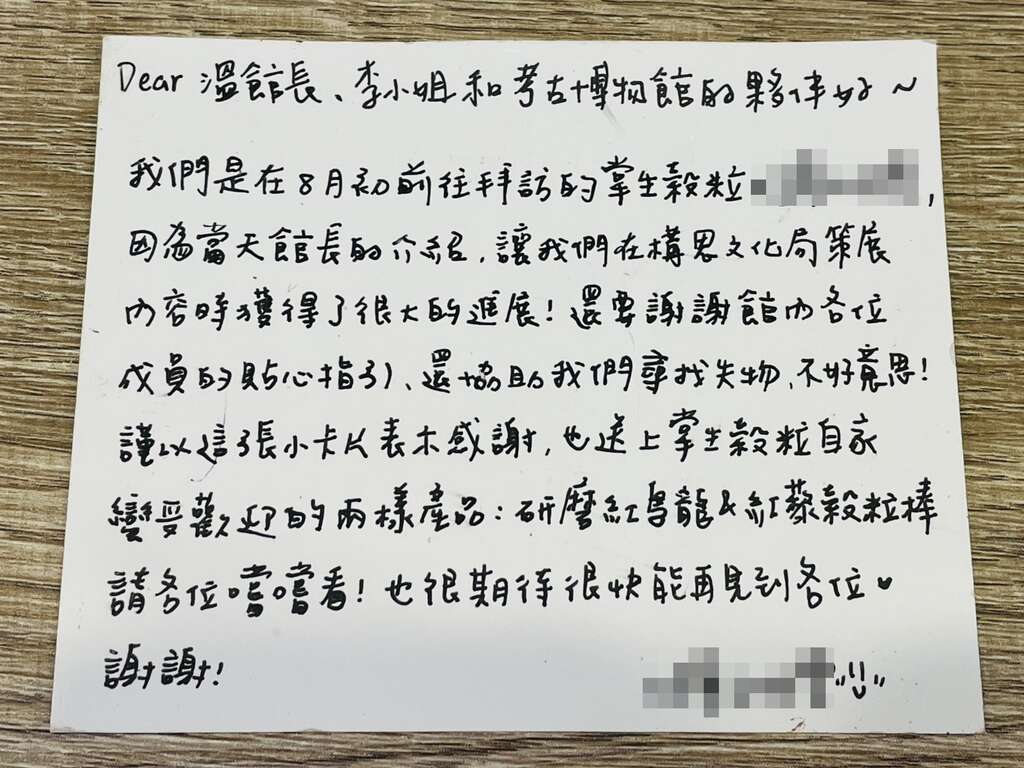 Dear 溫館長、李小姐和考古博物館的夥伴好～
我們是在8月初前往拜訪的掌生穀粒
因為當天館長的介紹，讓我們在構思文化局策展
內容時獲得了很大的進展！還要謝謝館內各位
成員的貼心指引、還協助我們尋找失物，不好意思！
謹以這張小卡片表示感謝，也送上掌生穀粒自家
變受歡迎的兩樣產品：研磨紅烏龍&紅藜穀粒棒
請各位嚐嚐看！也很期待很快能再見到各位♥
謝謝！